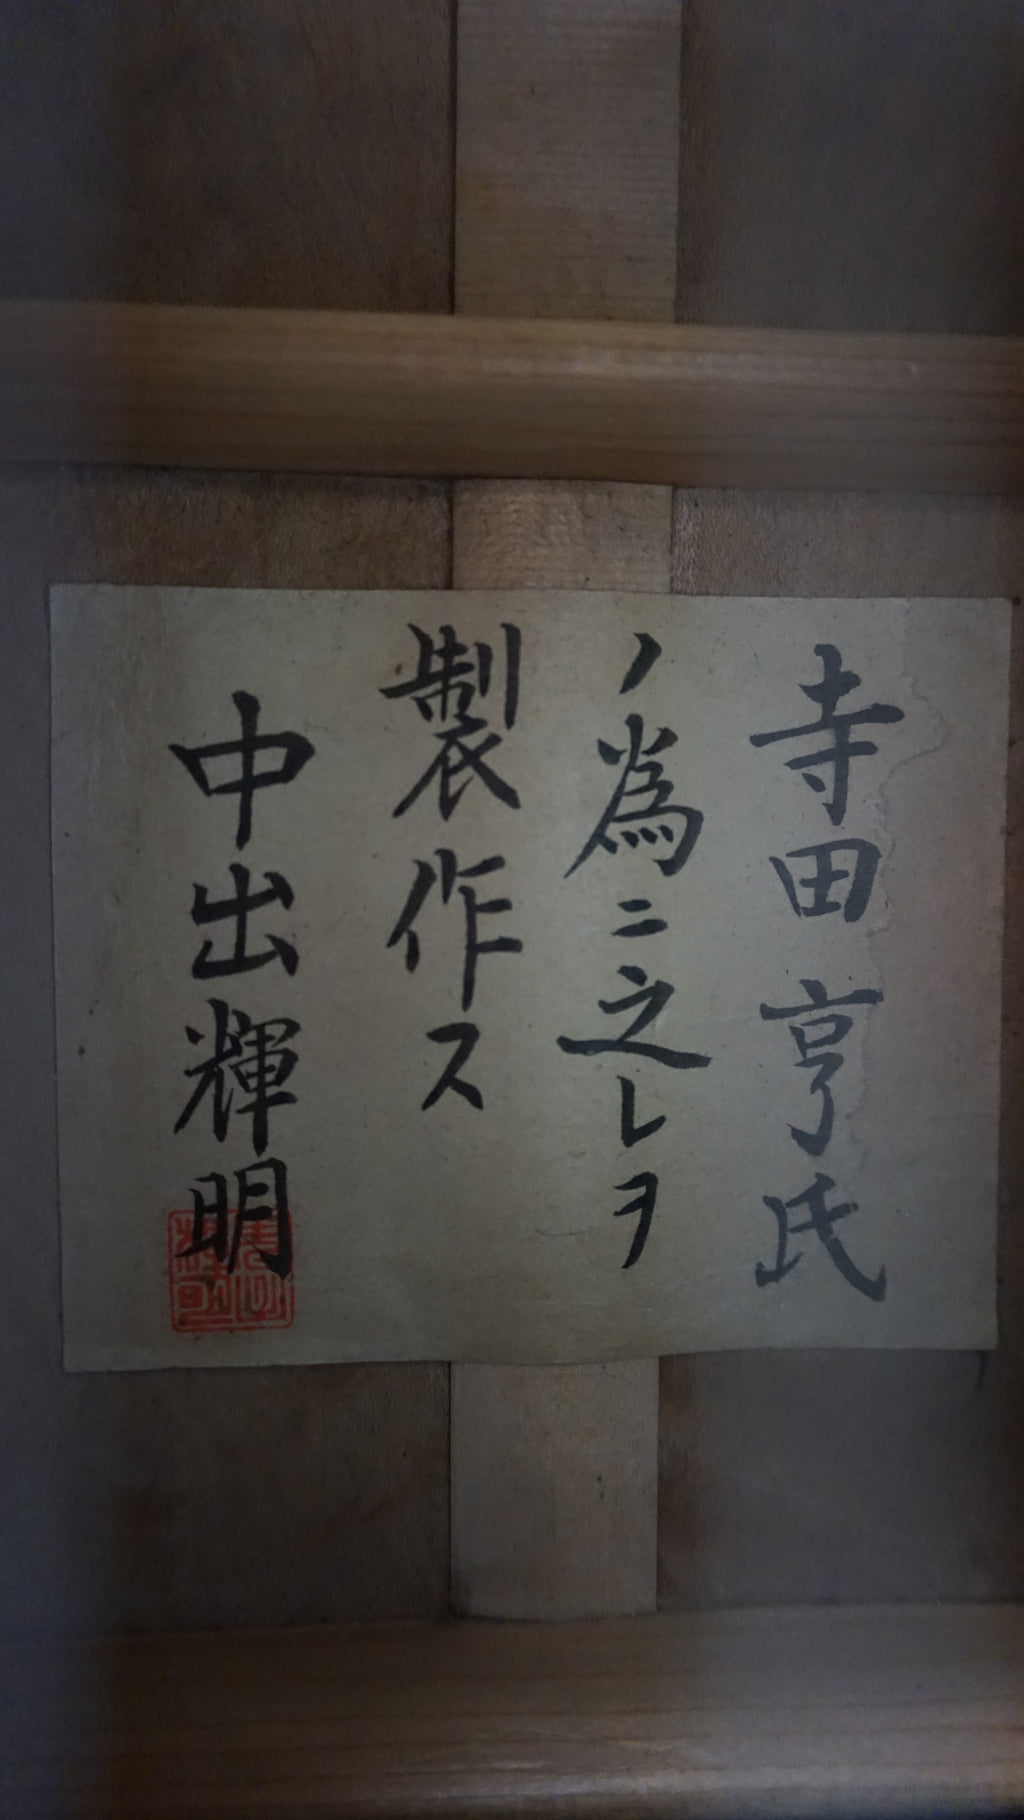 寺田亨氏
ノ為ニ之レヲ
製作ス
中出輝明